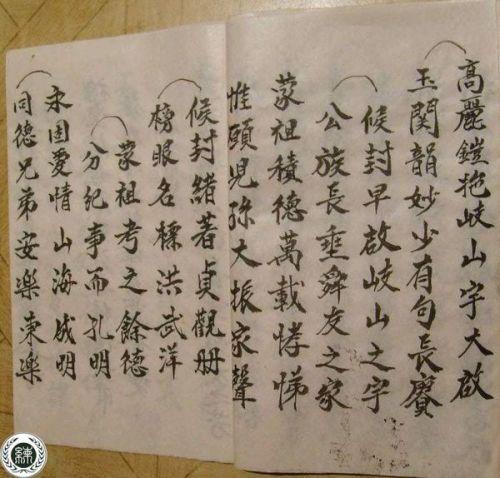 高麗鎧抱岐山宇大啟
玉関韻妙少有句長賡
候封早啟岐山之宇
公族長垂舜友之家
蒙祖積德萬載恃悌
惟願児孫大振家聲
候封緒著貞觀册
榜眼名標洪武洋
蒙祖考之餘德
分紀事而孔明
永固愛情山海成明
同德兄弟安樂東樂
練